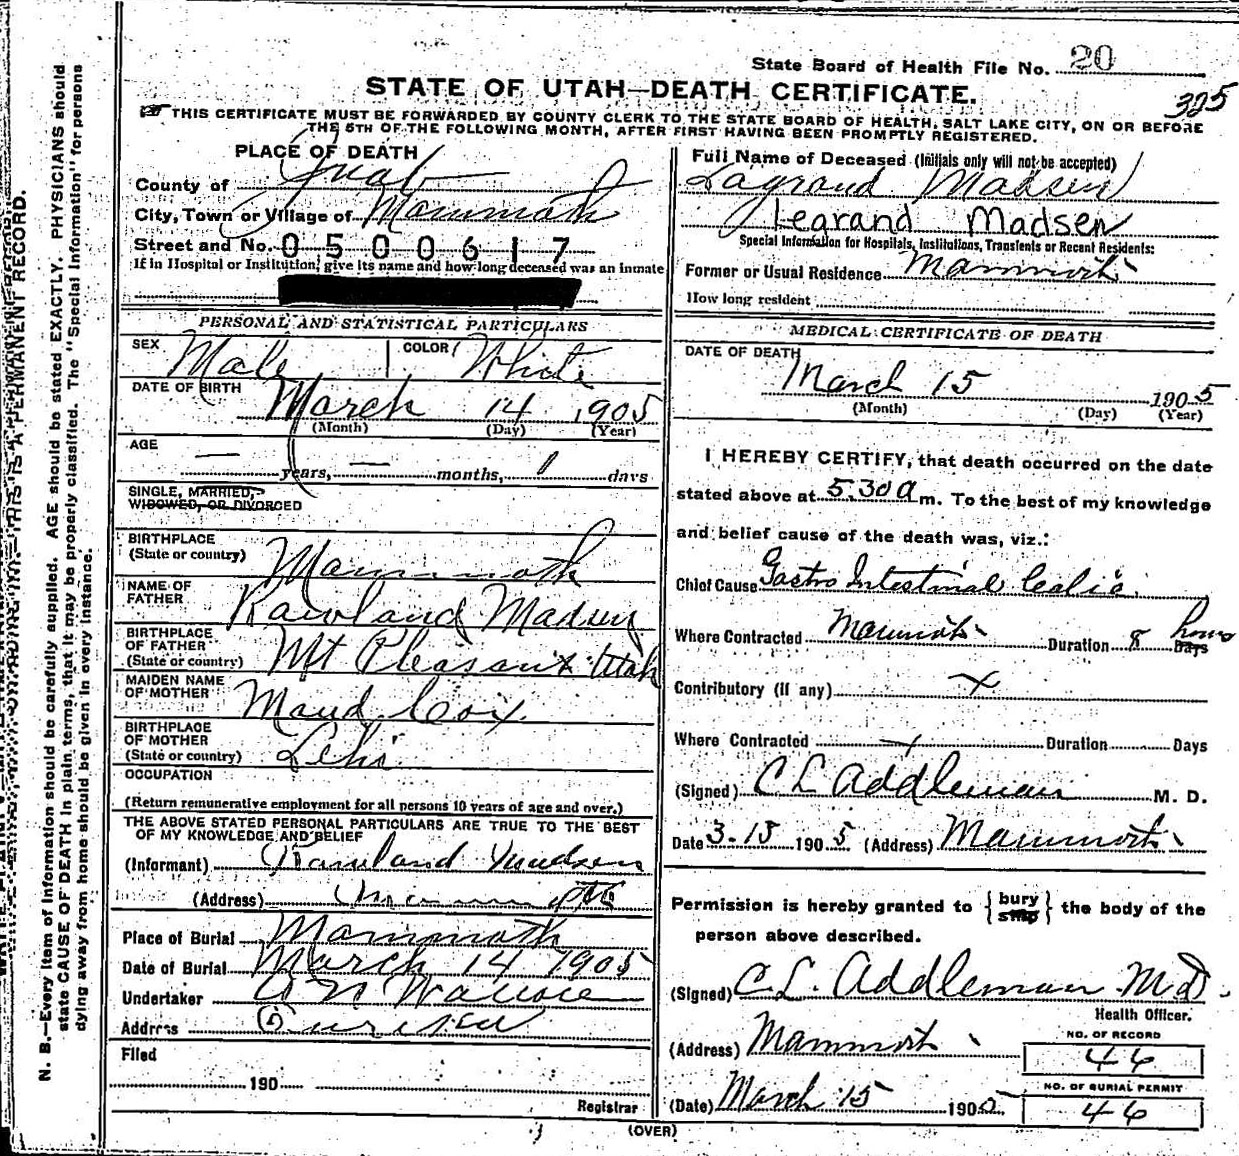 State Board of Health File No. 20
325
STATE OF UTAH—DEATH CERTIFICATE.
THIS CERTIFICATE MUST BE FORWARDED BY COUNTY CLERK TO THE STATE BOARD OF HEALTH, SALT LAKE CITY, ON OR BEFORE
THE 5TH OF THE FOLLOWING MONTH, AFTER FIRST HAVING BEEN PROMPTLY REGISTERED.
PLACE OF DEATH
County of Juab
City, Town or Village of Mammoth
Street and No. 0500617
If in Hospital or Institution, give its name and how long deceased was an inmate
PERSONAL AND STATISTICAL PARTICULARS
SEX Male COLOR White
DATE OF BIRTH March 14 1905
(Month) (Day) (Year)
AGE — years, — months, 1 days
SINGLE, MARRIED,
WIDOWED, OR DIVORCED
BIRTHPLACE
(State or country) Mammoth
NAME OF
FATHER Rawland Madsen
BIRTHPLACE
OF FATHER
(State or country) Mt Pleasant Utah
MAIDEN NAME
OF MOTHER Maud Cox
BIRTHPLACE
OF MOTHER
(State or country) Lehi
OCCUPATION
(Return remunerative employment for all persons 10 years of age and over.)
THE ABOVE STATED PERSONAL PARTICULARS ARE TRUE TO THE BEST
OF MY KNOWLEDGE AND BELIEF
(Informant) Rawland Madsen
(Address) Mammoth
Place of Burial Mammoth
Date of Burial March 14 1905
Undertaker Wallace
Address Eureka
Filed
190
Registrar
Full Name of Deceased (Initials only will not be accepted)
Lagrand Madsen
Legrand Madsen
Special Information for Hospitals, Institutions, Transients or Recent Residents:
Former or Usual Residence Mammoth
How long resident
MEDICAL CERTIFICATE OF DEATH
DATE OF DEATH
March 15 1905
(Month) (Day) (Year)
I HEREBY CERTIFY, that death occurred on the date
stated above at 5.30 a m. To the best of my knowledge
and belief cause of the death was, viz.:
Chief Cause Gastro Intestinal Colic.
Where Contracted Mammoth Duration 8 hours Days
Contributory (if any)
Where Contracted Duration Days
(Signed) C L Addleman M. D.
Date 3-15 1905. (Address) Mammoth
Permission is hereby granted to { bury ship } the body of the
person above described.
(Signed) C. L. Addleman M.D.
Health Officer.
(Address) Mammoth
NO. OF RECORD
46
NO. OF BURIAL PERMIT
46
(Date) March 15 1905
(OVER)
N. B.—Every item of information should be carefully supplied. AGE should be stated EXACTLY. PHYSICIANS should
state CAUSE OF DEATH in plain terms, that it may be properly classified. The "Special Information" for persons
dying away from home should be given in every instance.
THIS IS A PERMANENT RECORD.